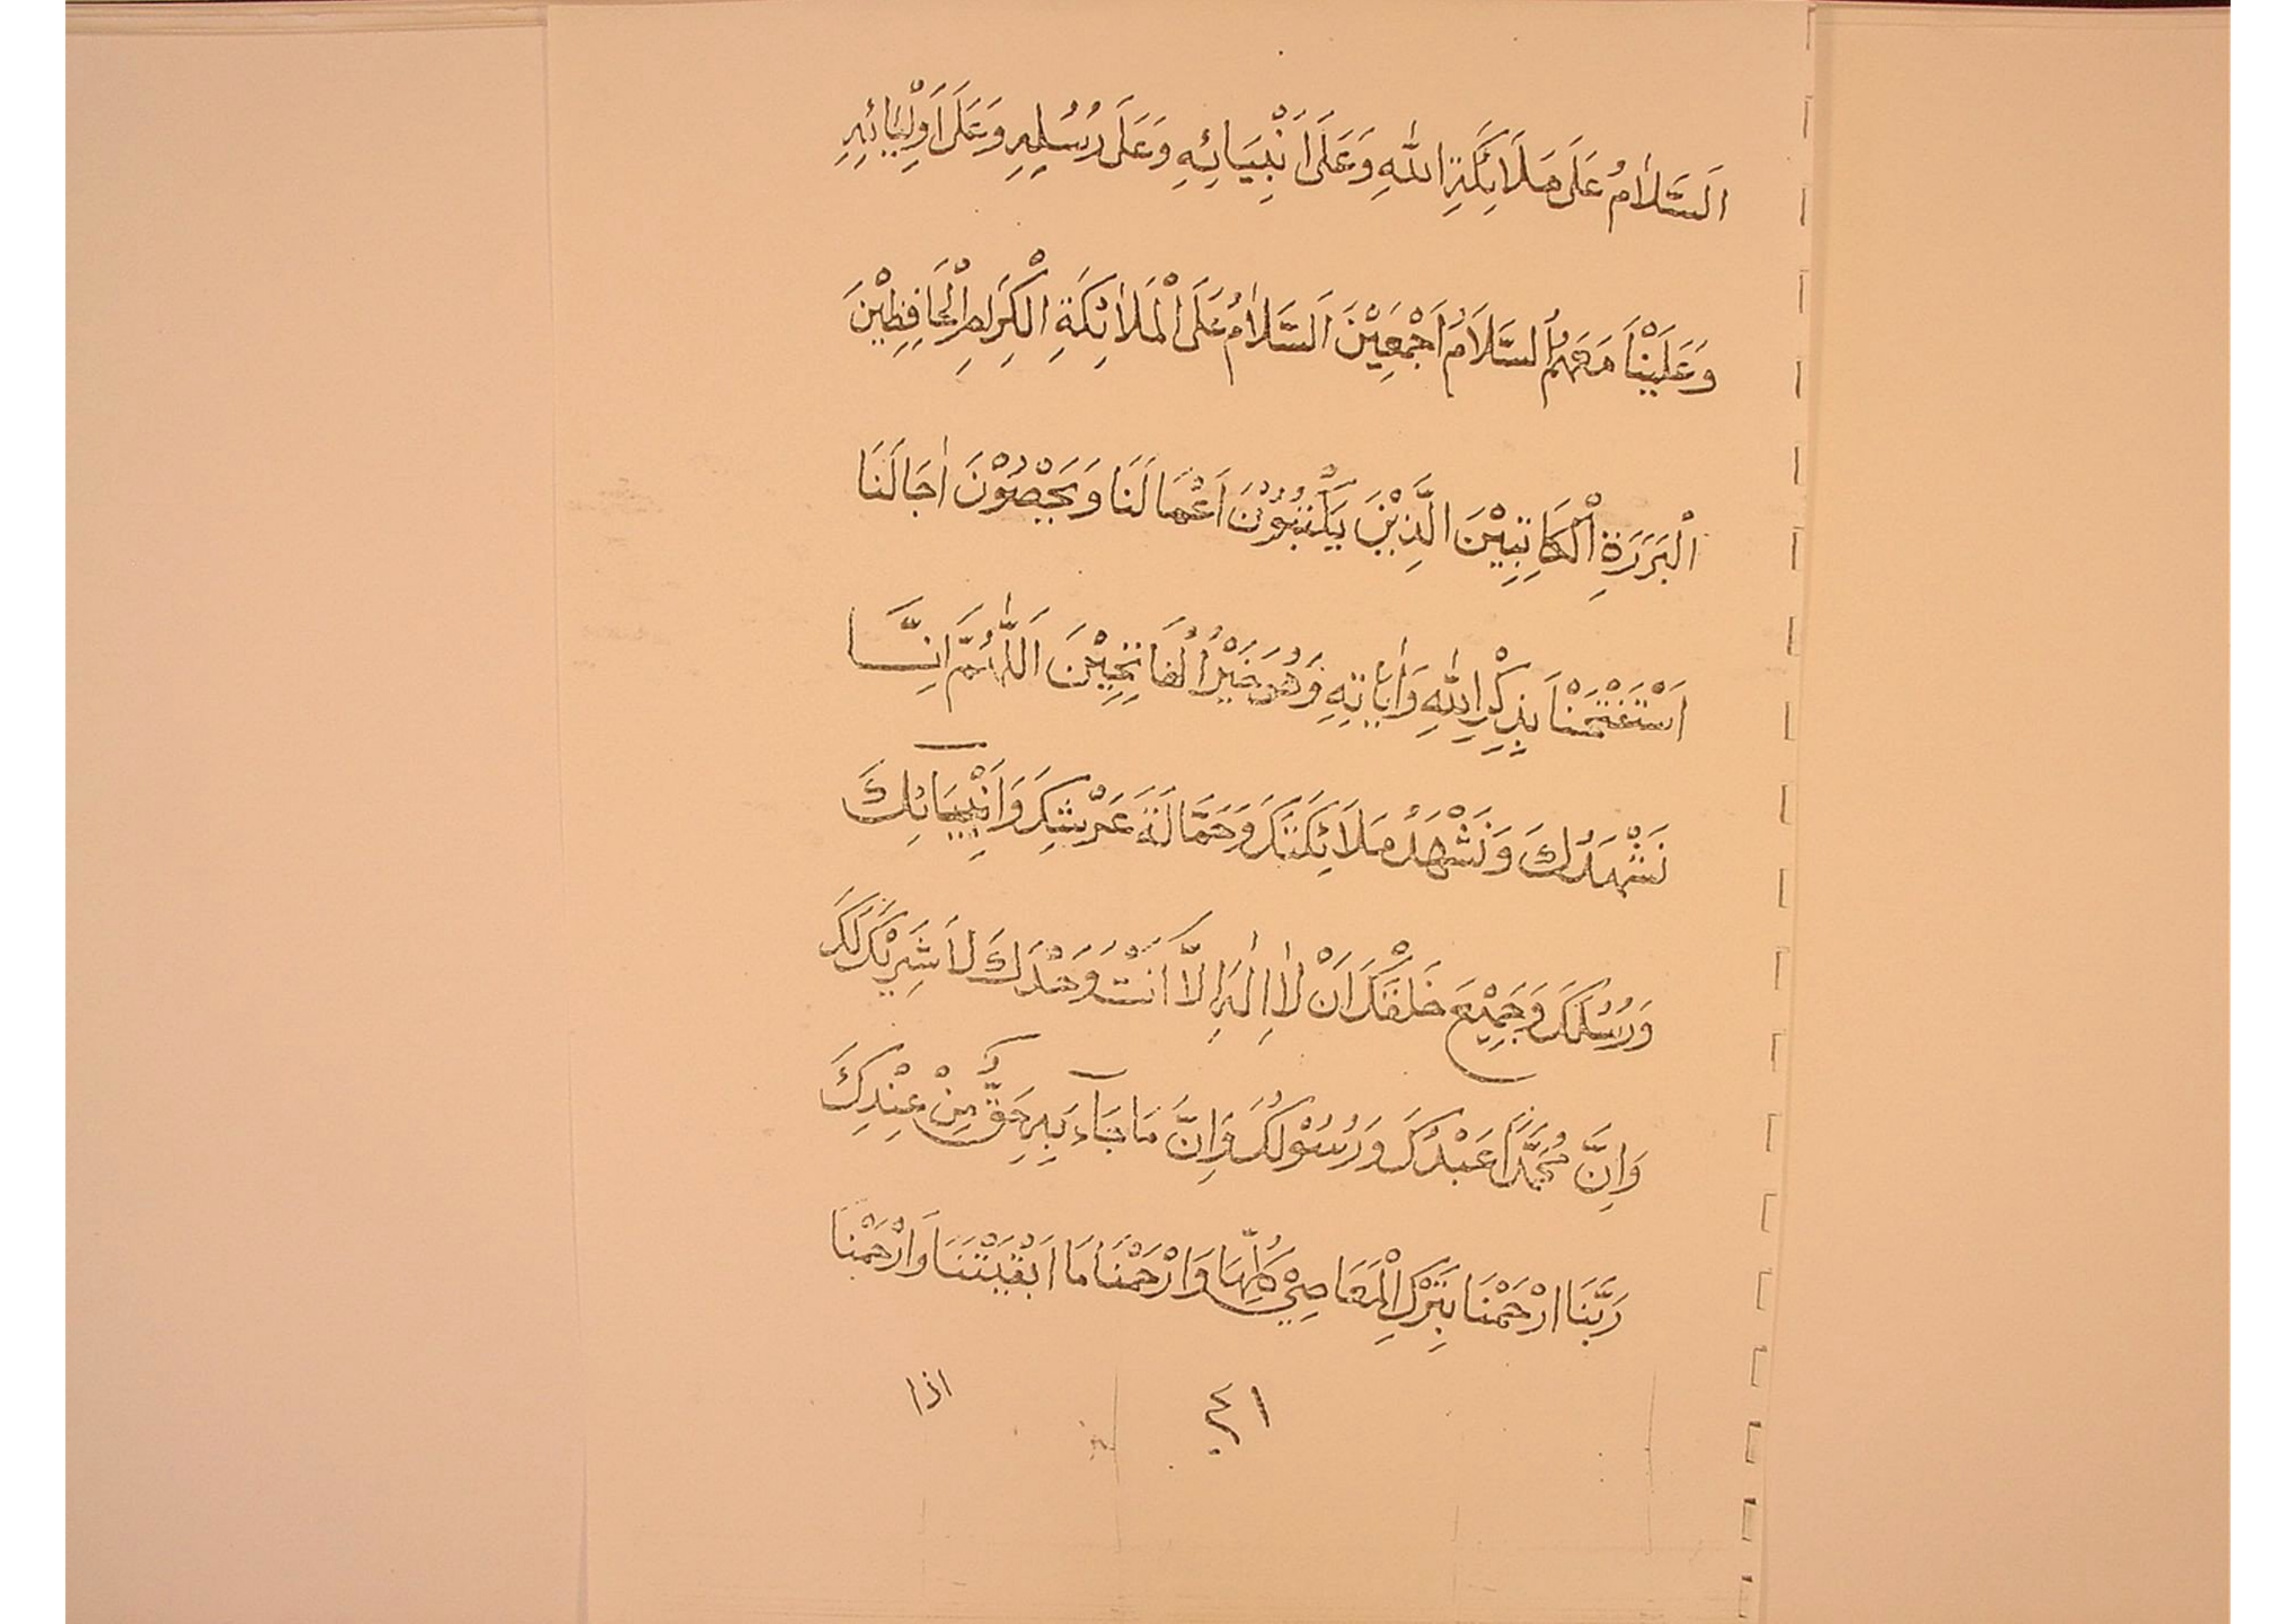 اَلسَّلَامُ عَلَى مَلَائِكَةِ اللهِ وَعَلَى اَنْبِيَائِهِ وَعَلَى رُسُلِهِ وَعَلَى اَوْلِيَائِهِ
وَعَلَيْنَا مَعَهُمُ السَّلَامُ اَجْمَعِيْنَ اَلسَّلَامُ عَلَى الْمَلَائِكَةِ الْكِرَامِ الْحَافِظِيْنَ
الْبَرَرَةِ الْكَاتِبِيْنَ الَّذِيْنَ يَكْتُبُوْنَ اَعْمَالَنَا وَيَحْصُوْنَ اٰجَالَنَا
اَسْتَفْتَحْنَا بِذِكْرِ اللهِ وَاٰيَاتِهِ وَهُوَ خَيْرُ الْفَاتِحِيْنَ اَللّٰهُمَّ اِنَّا
نَشْهَدُكَ وَنَشْهَدُ مَلَائِكَتَكَ وَحَمَّالَةَ عَرْشِكَ وَاَنْبِيَائِكَ
وَرُسُلَكَ وَجَمِيْعَ خَلْقِكَ اَنْ لَا اِلٰهَ اِلَّا اَنْتَ وَحْدَكَ لَا شَرِيْكَ لَكَ
وَاِنَّ مُحَمَّدًا عَبْدُكَ وَرُسُوْلُكَ وَاِنَّ مَا جَآءَ بِهِ حَقٌّ مِنْ عِنْدِكَ
رَبَّنَا ارْحَمْنَا بِتَرْكِ الْمَعَاصِيْ كُلِّهَا وَارْحَمْنَا مَا اَبْقَيْتَنَا وَارْحَمْنَا
٤١
اذا